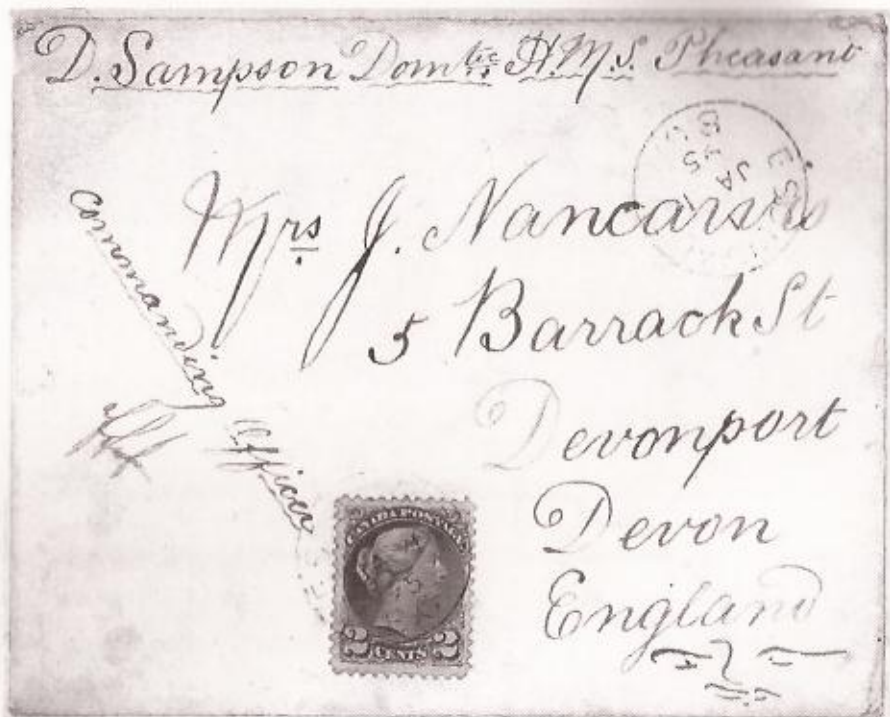 D. Sampson Dom:tic H.M.S. Pheasant
Mrs J.
5 Barrack St
Devonport
Devon
England
Commanding Officer
CANADA POSTAGE
2 CENTS 2
JA
95